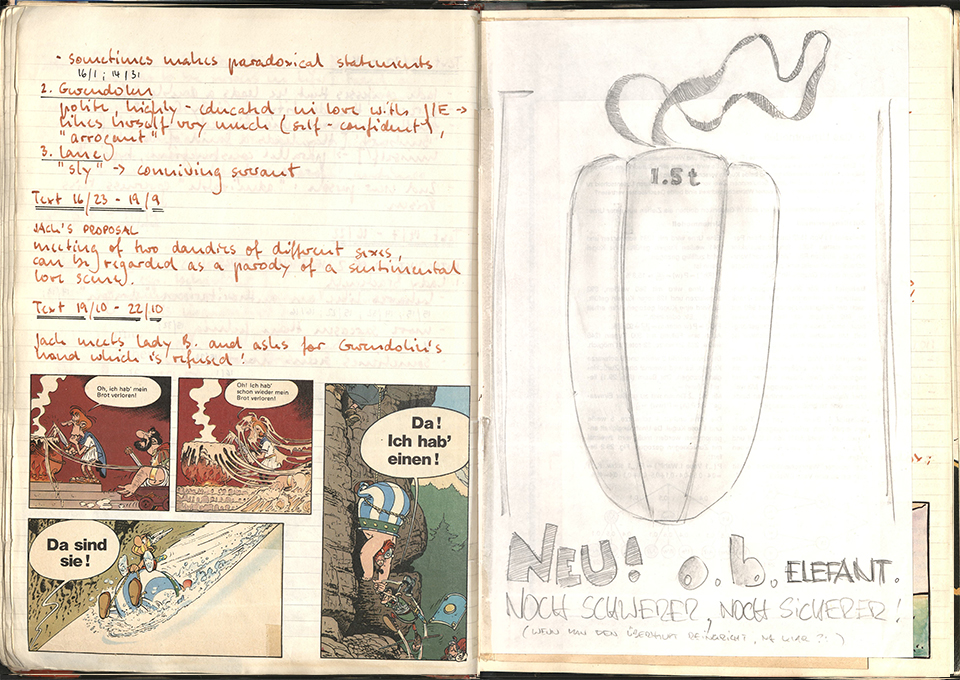 - sometimes makes paradoxical statements
16/1 ; 14/31
2. Gwendolin
polite, highly - educated, in love with J/E ->
likes herself very much (self - confident),
"arrogant"
3. Lane
"sly" -> conniving servant
Text 16/23 - 19/9
JACK'S PROPOSAL
meeting of two dandies of different sexes,
can be regarded as a parody of a sentimental
love scene).
Text 19/10 - 22/10
Jack meets lady B. and asks for Gwendolin's
hand which is refused!
Oh, ich hab' mein
Brot verloren!
Oh! Ich hab'
schon wieder mein
Brot verloren!
Da!
Ich hab'
einen!
Da sind
sie!
1.5t
NEU! o.b. ELEFANT.
NOCH SCHWERER, NOCH SICHERER!
(WENN MAN DEN ÜBERHAUPT REINKRICHT, NE WAR ?!)